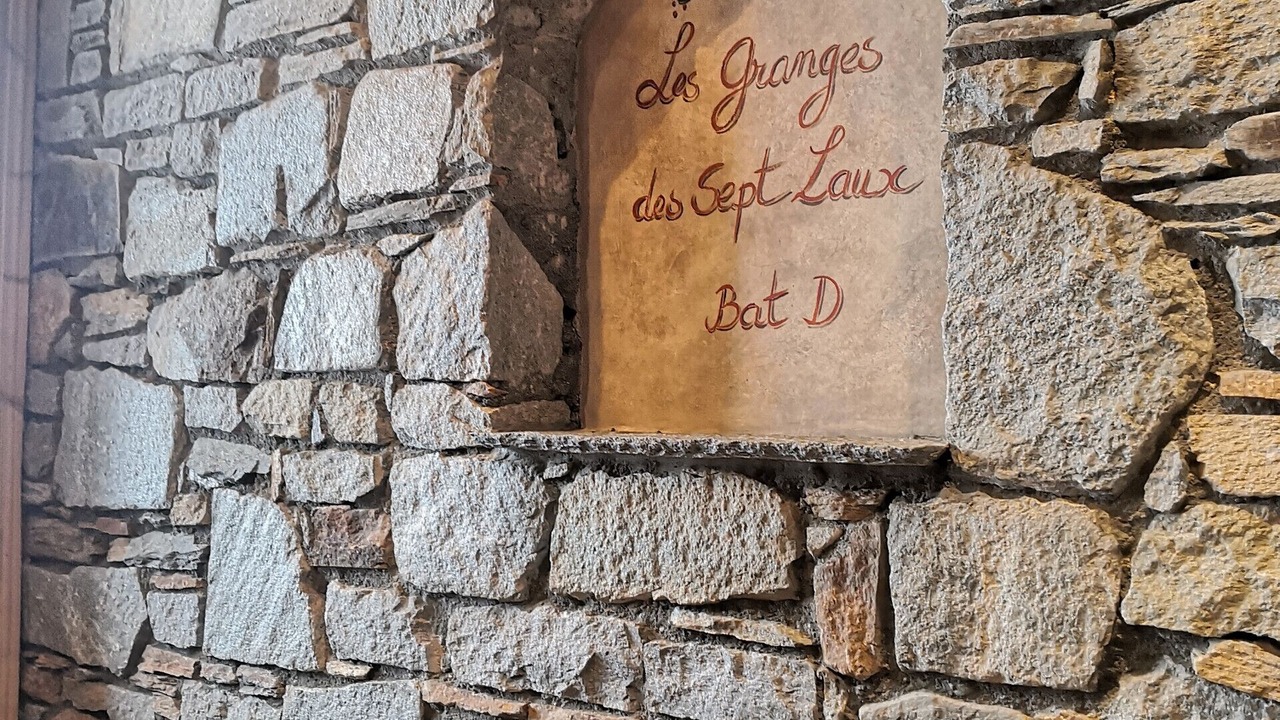 Les Granges
des Sept Laux
Bat D